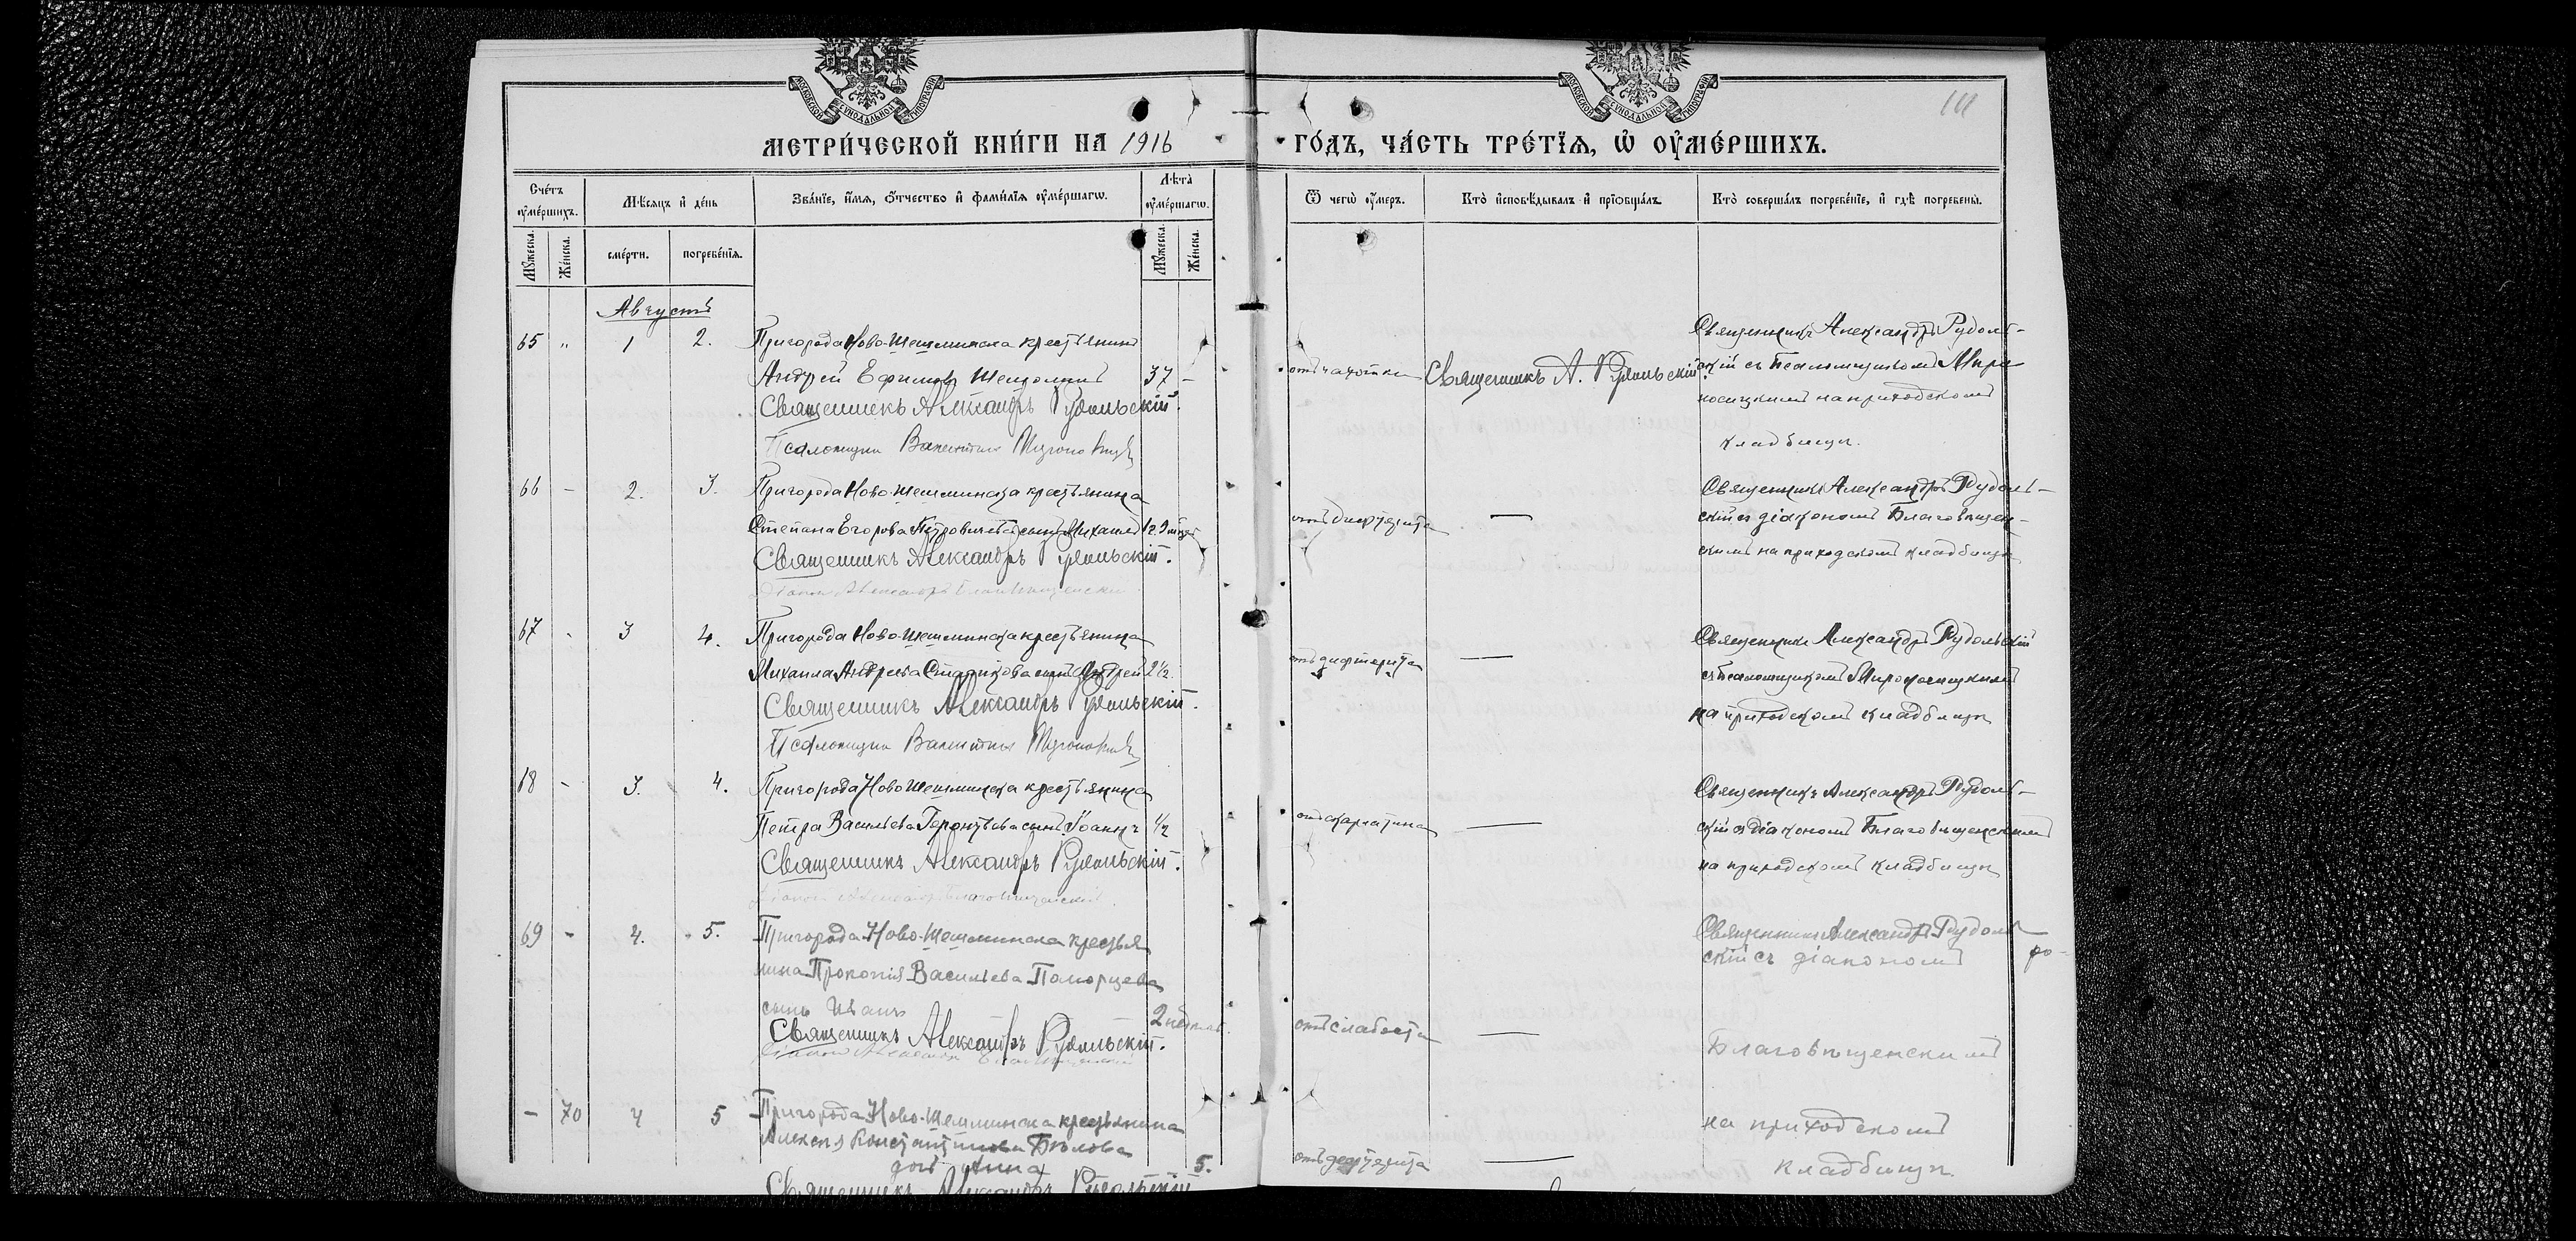 111
МЕТРИ́ЧЕСКОЙ КНИ́ГИ НА 1916 ГО́ДЪ, ЧА́СТЬ ТРЕ́ТЇѦ, Ѽ ОУ҆МЕ́РШИХЪ.
Сче́тъ оу҆ме́ршихъ.
Мꙋ́жеска.
Же́нска.
Мѣ́сѧцъ и҆ де́нь
сме́рти.
погребе́нїѧ.
Зва́нїе, и҆́мѧ, ѻ҆́тчество и҆ фамилїѧ оу҆ме́ршагѡ.
Лѣ́та оу҆ме́ршагѡ.
Мꙋ́жеска.
Же́нска.
Ѿ чегѡ̀ оу҆́меръ.
Кто̀ и҆сповѣ́дывалъ и҆ прїѡбща́лъ.
Кто̀ соверша́лъ погребе́нїе, и҆ гдѣ̀ погребены̀.
Августъ
65 " 1 2. Пригорода Ново-Шешминска крестьянинъ
Андрей Ефимовъ 37 -
Священникъ Александръ Рудольскій.
Псаломщикъ Валентинъ
отъ чахотки
Священникъ А. Рудольскій
Священникъ Александръ Рудоль-
скій съ Псаломщикомъ Миро-
носицкимъ на приходскомъ
кладбищѣ.
66 - 2. 3. Пригорода Ново-Шешминска крестьянина
Степана Егорова сынъ Михаилъ
Священникъ Александръ Рудольскій.
Діаконъ Александръ Благовѣщенскій
отъ дифтерита
—
Священникъ Александръ Рудоль-
скій съ діакономъ Благовѣщен-
скимъ на приходскомъ кладбищѣ
67 - 3 4. Пригорода Ново-Шешминска крестьянина
Михаила Андреева сынъ Андрей 2½
Священникъ Александръ Рудольскій.
Псаломщикъ Валентинъ
отъ дифтерита
—
Священникъ Александръ Рудольскій
съ Псаломщикомъ Мироносицкимъ
на приходскомъ кладбищѣ
68 - 3. 4. Пригорода Ново Шешминска крестьянина
Петра Васильева Геронтьева сынъ Іоаннъ ½
Священникъ Александръ Рудольскій.
Діаконъ Александръ Благовѣщенскій
отъ скарлатина
—
Священникъ Александръ Рудоль-
скій съ діакономъ Благовѣщенскимъ
на приходскомъ кладбищѣ
69 - 4. 5. Пригорода Ново-Шешминска крестья
нина Прокопія Васильева Поморцева
сынъ Иванъ
Священникъ Александръ Рудольскій.
Діаконъ Александръ Благовѣщенскій
отъ слабости
—
Священникъ Александръ Рудоль-
скій съ діакономъ
Благовѣщенскимъ
- 70 4 5 Пригорода Ново-Шешминска крестьянина
Алексѣя Константинова Бѣлова
дочь Анна 5.
Священникъ Александръ Рудольскій
отъ дифтерита
—
на приходскомъ
кладбищѣ.